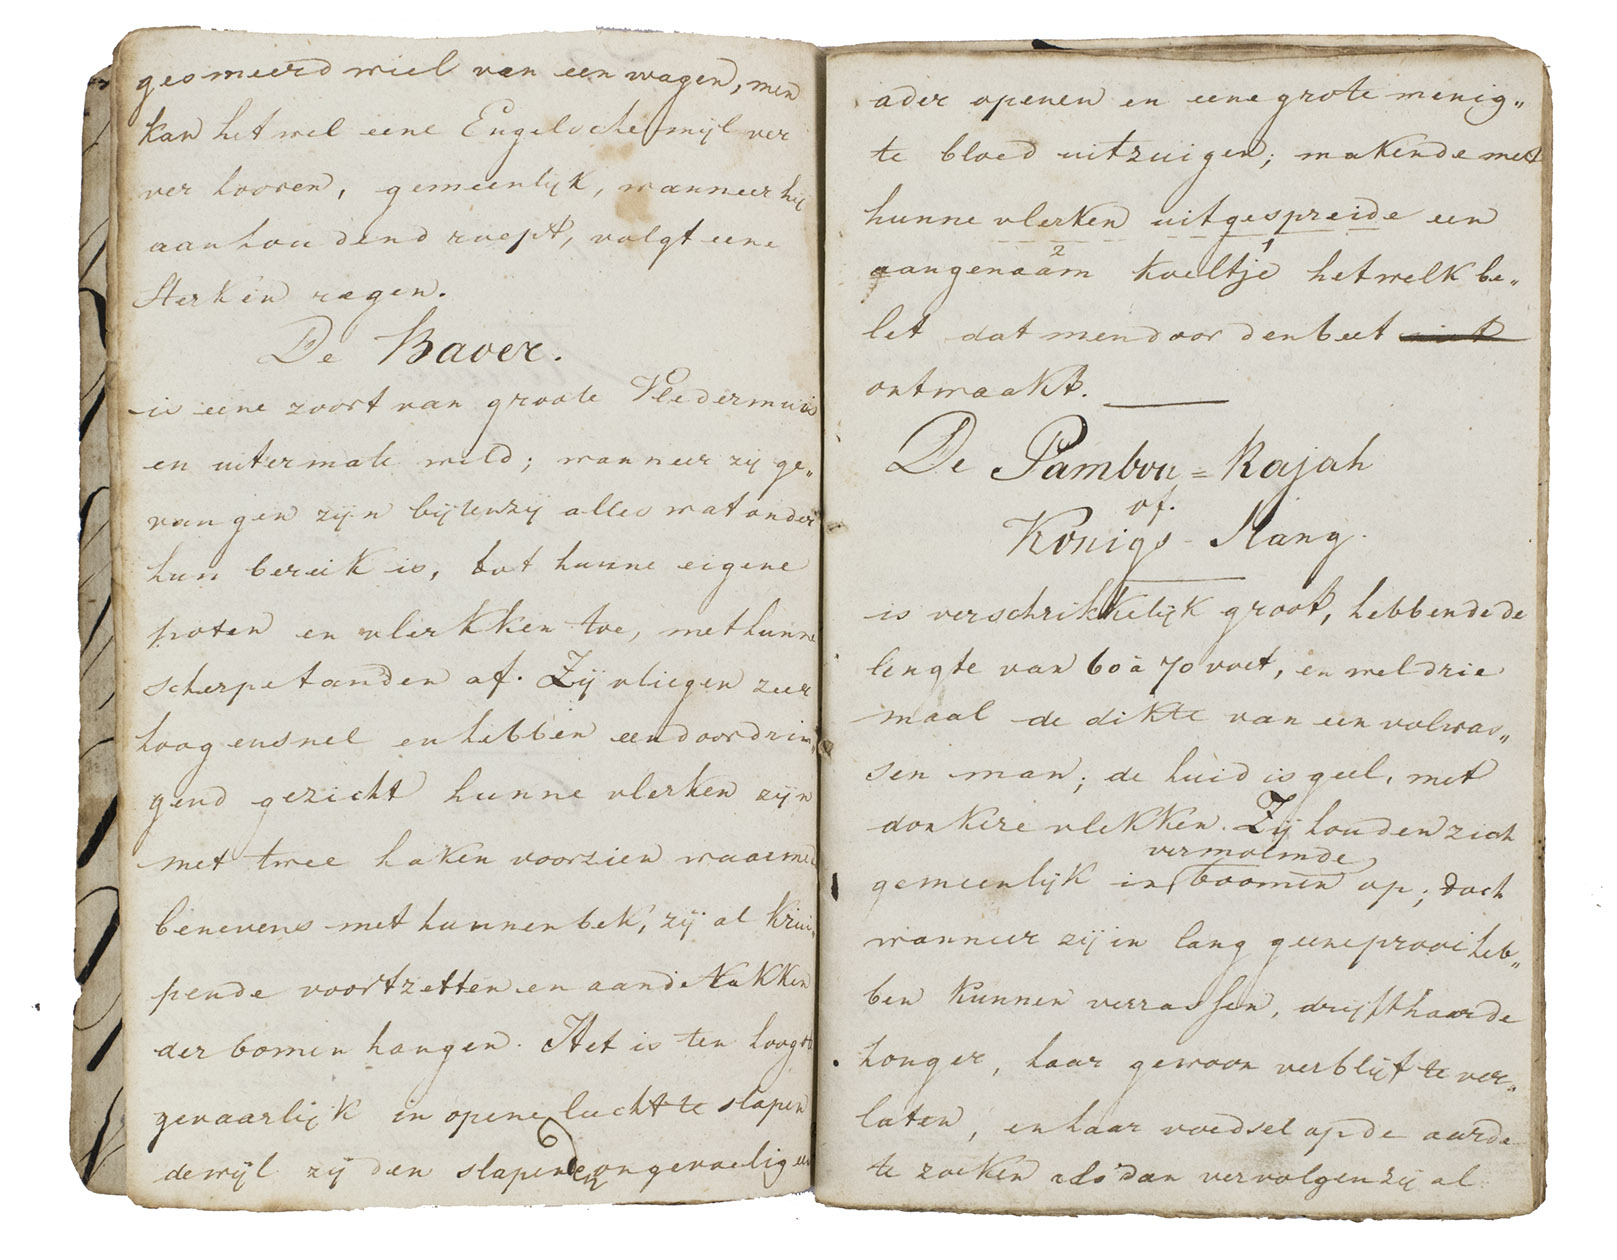 gesmeerd wiel van een wagen, men
kan het wel eene Engelsche mijl ver
ver hooren, gemeenlijk, wanneer hij
aanhoudend roept, volgt eene
sterken regen.
De Baver.
is eene zoort van groote Vledermuis
en uitermate wild; wanneer zij ge„
vangen zijn bijten zij alles wat onder
hun bereik is, tot hunne eigene
poten en vlerkken toe, met hunne
scherpe tanden af. Zij vliegen zeer
hoog en snel en hebben een doordrin„
gend gezicht hunne vlerken zijn
met twee haken voorzien waarmed
benevens met hunnen bek, zij al krui„
pende voortzetten en aan de takken
der bomen hangen. Het is ten hoogste
gevaarlijk in opene lucht te slapen
dewijl zij den slapende ongevoelig een
ader openen en eene grote menig„
te bloed uitzuigen; makende met
hunne vlerken uitgespreide een
2 1
aangenaam koeltje hetwelk be„
let dat men door den beet niet
ontwaakt.
De Pambou = Rajah
of.
Konigs - Slang.
is verschrikkelijk groot, hebbende de
lengte van 60 à 70 voet, en wel drie
maal de dikte van een volwas„
sen man; de huid is geel, met
donkere vlekken. Zij houden zich
vermolmde
gemeenlijk in boomen op; doch
wanneer zij in lang geene prooi heb„
ben kunnen verrassen, drijft haar de
honger, haar gewoon verblijf te ver„
laten, en haar voedsel op de aarde
te zoeken als dan vervolgen zij al